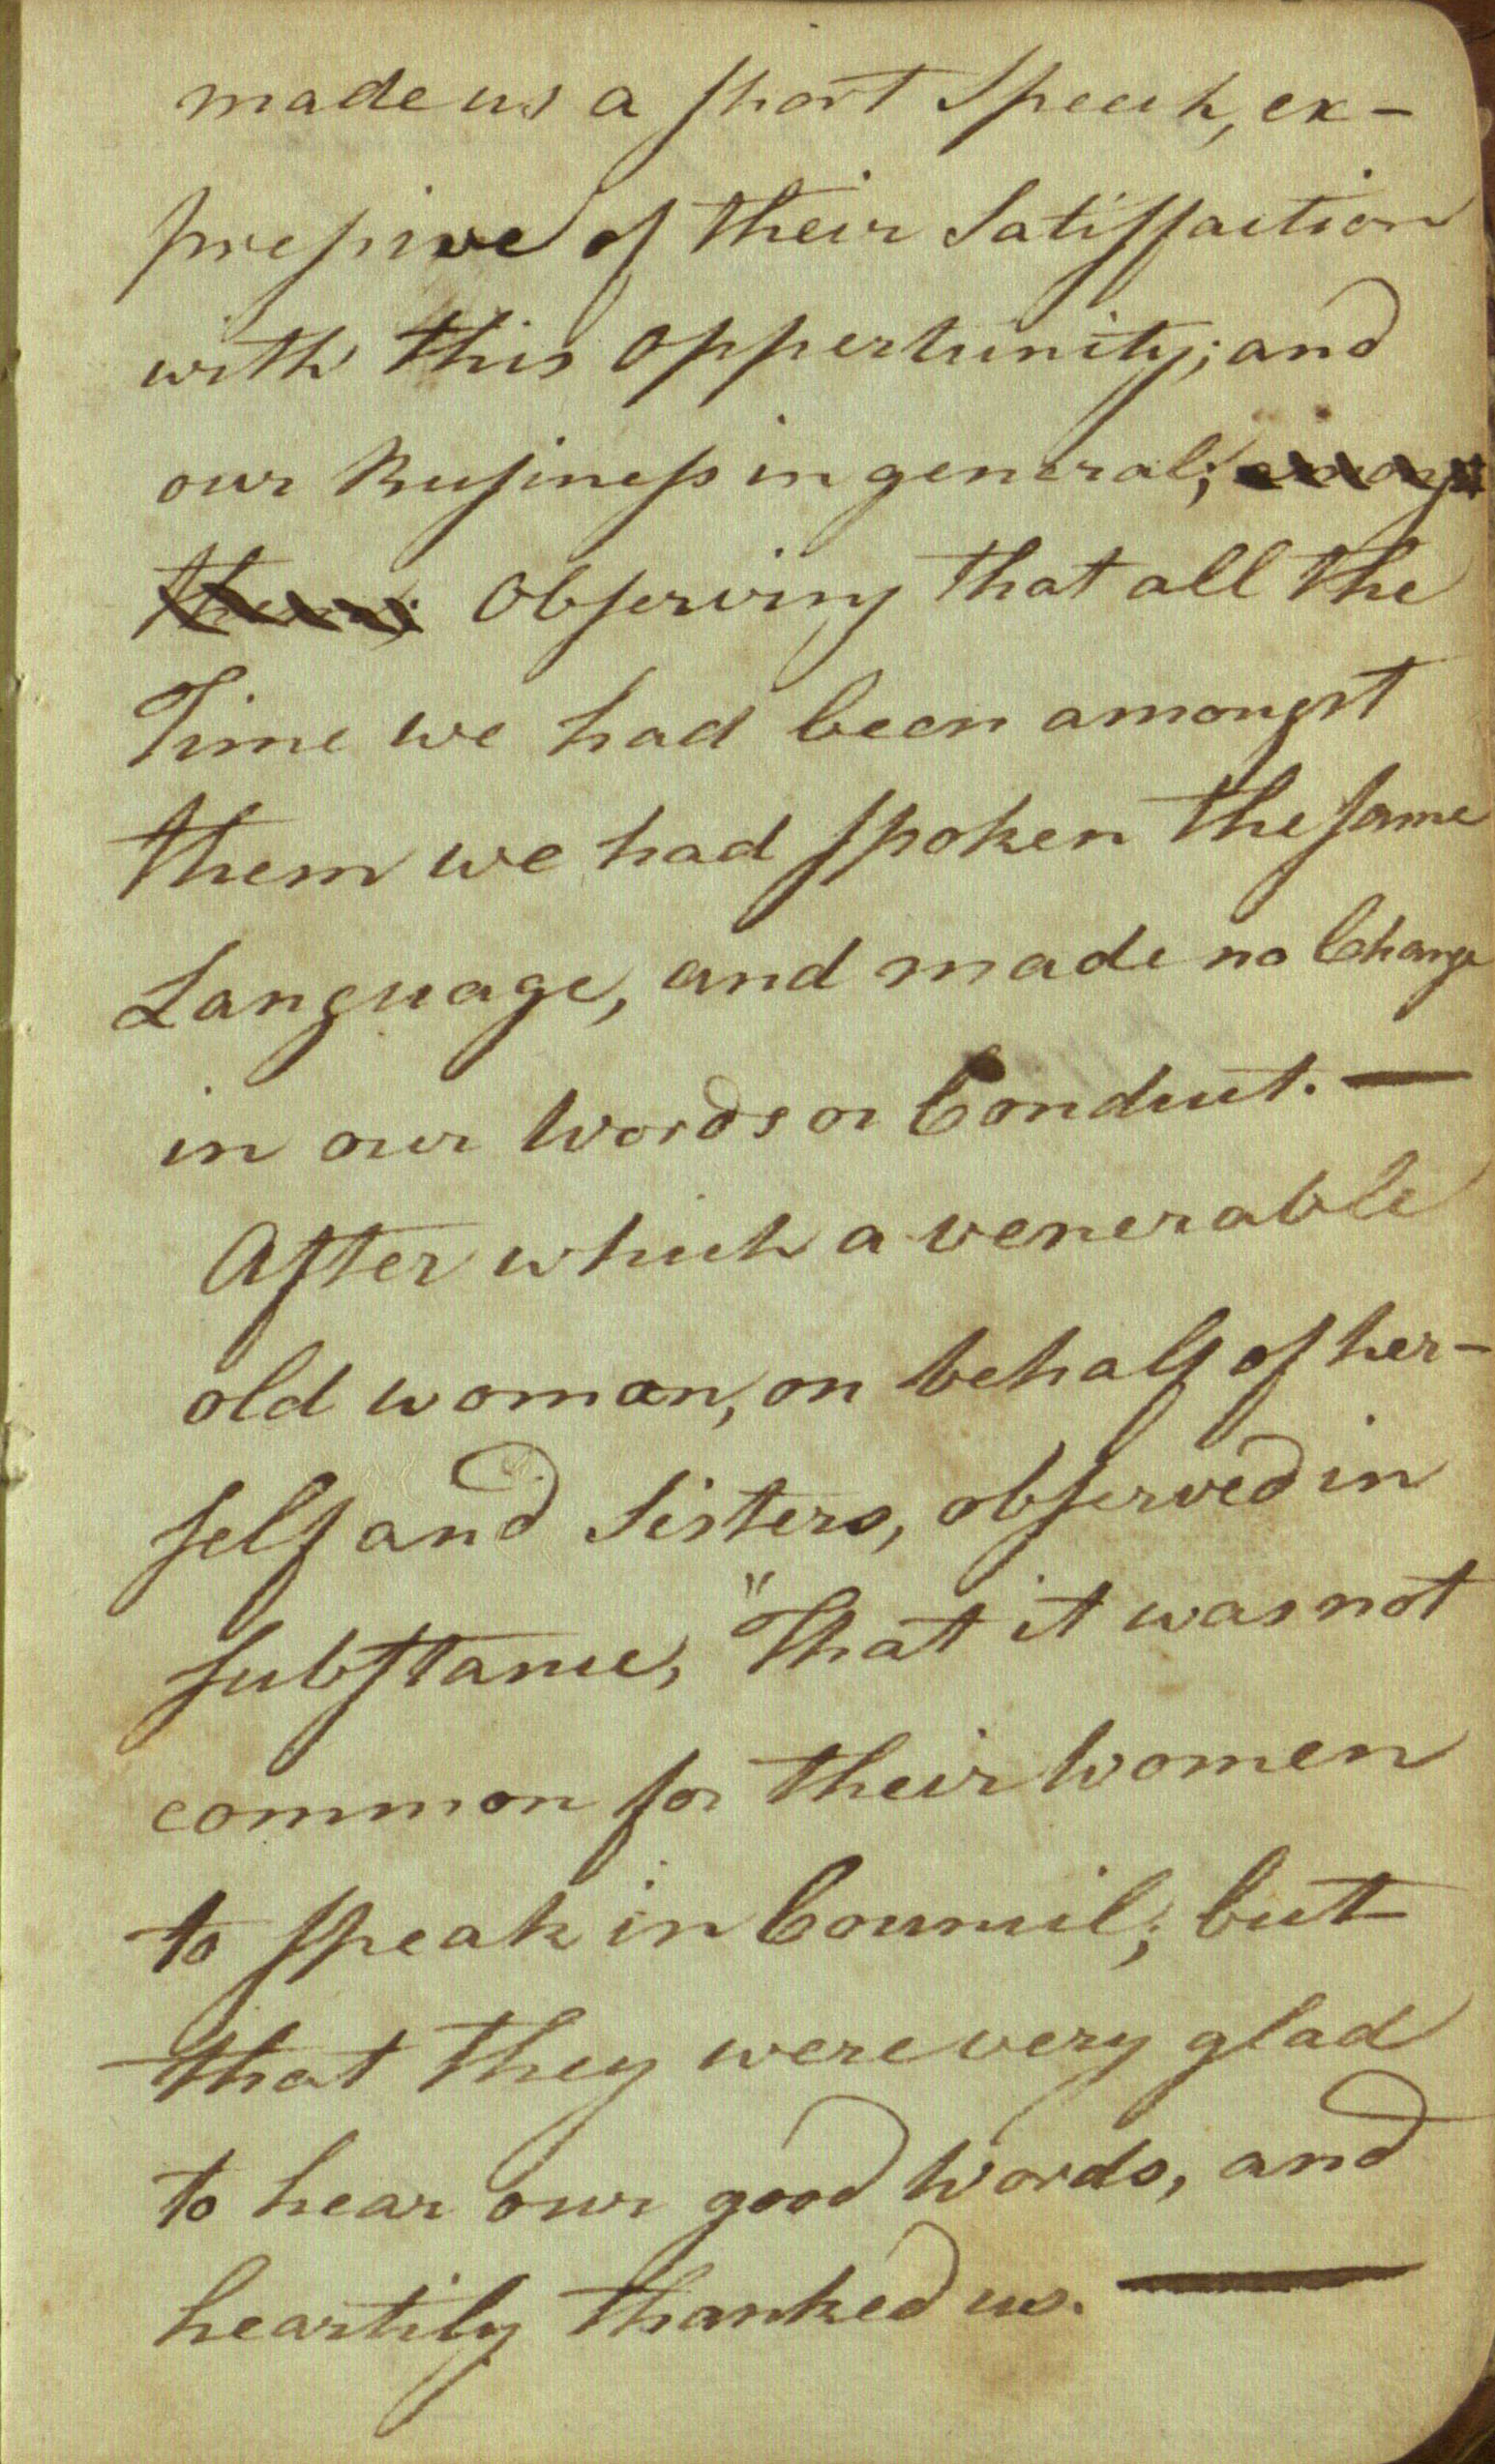 made us a short Speech, ex-
pressive of their Satisfaction
with this oppertunity; and
our Business in general; amongst
them; Observing that all the
Time we had been amongst
them we had spoken the same
Language, and made no Change
in our Words or Conduct. —
After which a venerable
old woman, on behalf of her-
self and Sisters, observed in
substance, "That it was not
common for their Women
to speak in Council; but
that they were very glad
to hear our good Words, and
heartily thanked us. —